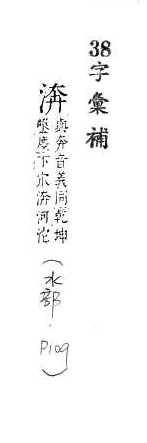 38字彙補
渀
與奔音義同乾坤
鑿度下水渀河沱
(水部·P109)